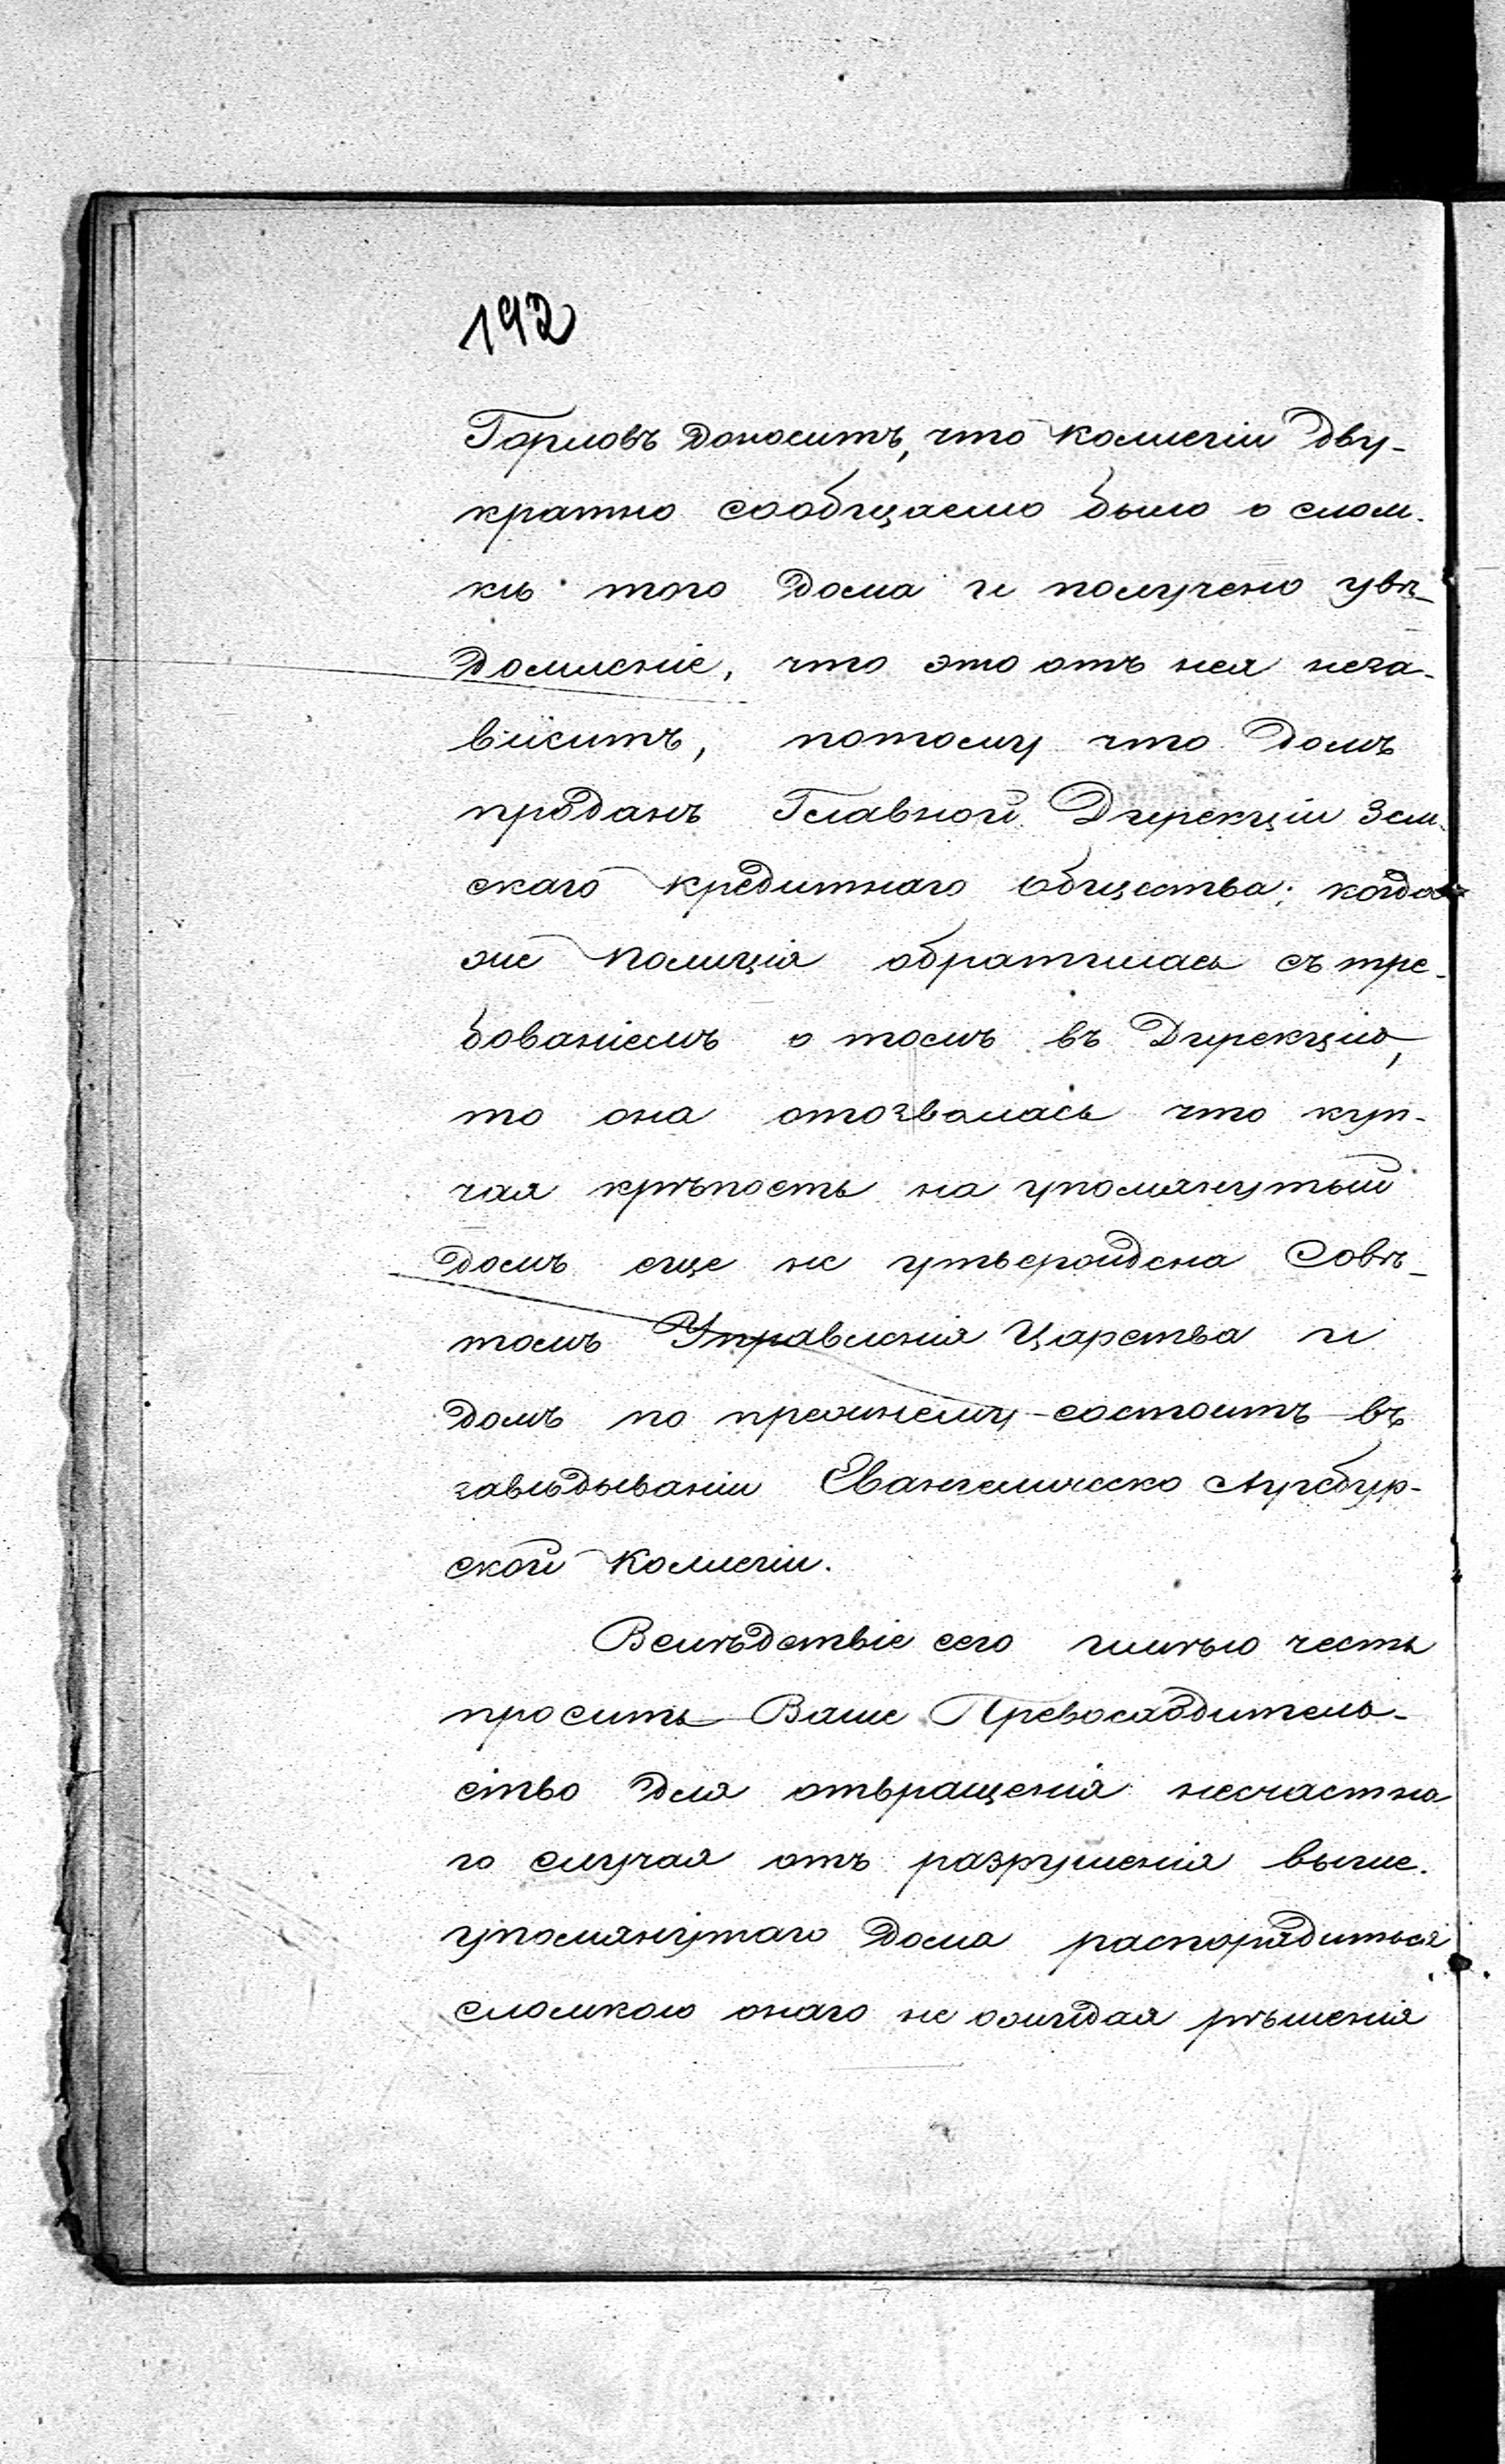 192
Горловъ доноситъ, что Коллегіи дву-
кратно сообщаемо было о слом-
кѣ того дома и получено увѣ-
домленіе, что это отъ нея неза-
виситъ, потому что домъ
проданъ Главной Дирекціи Зем-
скаго Кредитнаго Общества; когда
же Полиція обратилась съ тре-
бованіемъ о томъ въ Дирекцію,
то она отозвалась что куп-
чая крѣпость на упомянутый
домъ еще не утверждена Совѣ-
томъ Управленія Царства и
домъ по прежнему состоитъ въ
завѣдываніи Евангелическо Аугсбур-
ской Коллегіи.
Вслѣдствіе сего имѣю честь
просить Ваше Превосходитель-
ство для отвращенія несчастна
го случая отъ разрушенія выше-
упомянутаго дома распорядиться
сломкою онаго не ожидая рѣшенія